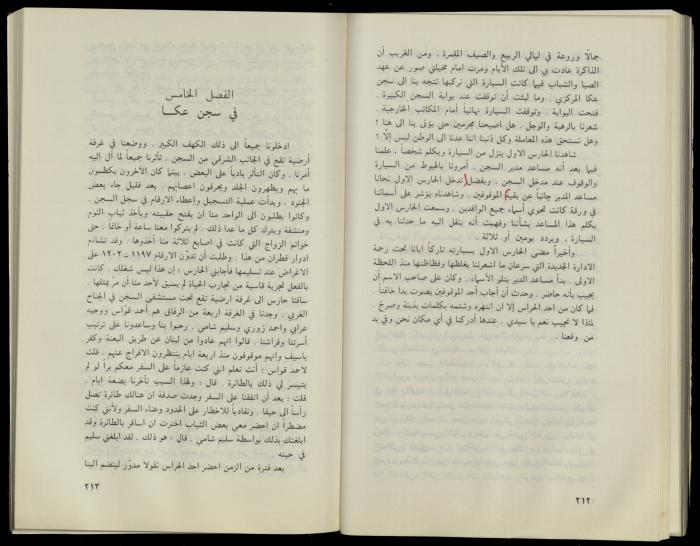 جمالاً وروعة في ليالي الربيع والصيف المقمرة . ومن الغريب أن
الذاكرة عادت بي الى تلك الأيام ومرت امام مخيلتي صور عن عهد
الصبا والشباب فيما كانت السيارة التي تركبها تتجه بنا الى سجن
عكا المركزي . وما لبثت أن توقفت عند بوابة السجن الكبيرة .
فتحت البوابة . وتوقفت السيارة نهائياً أمام المكاتب الخارجية .
شعرنا بالرهبة والوجل . هل اصبحنا مجرمين حتى يؤتى بنا الى هنا ؟
وهل نستحق هذه المعاملة وكل ذنبنا اننا عدنا الى الوطن ليس إلّا ؟
شاهدنا الحارس الاول ينزل من السيارة ويكلم شخصاً ، علمنا
فيما بعد أنه مساعد مدير السجن . أمرونا بالهبوط من السيارة
والوقوف عند مدخل السجن . وبفضل تدخل الحارس الاول نحانا
مساعد المدير جانباً عن بقية الموقوفين . وشاهدناه يؤشر على أسمائنا
في ورقة كانت تحوي أسماء جميع الوافدين . وسمعت الحارس الاول
يكلم هذا المساعد بشأننا وفهمت أنه ينقل اليه ما حدثنا به في
السيارة . ويردد يومين أو ثلاثة .
وأخيراً مضى الحارس الاول بسيارته تاركاً ايانا تحت رحمة
الادارة الجديدة التي سرعان ما اشعرتنا بغلظها وفظاظتها منذ اللحظة
الاولى . بدأ مساعد المدير يتلو الأسماء . وكان على صاحب الاسم أن
يجيب بأنه حاضر . وحدث أن أجاب أحد الموقوفين بصوت بدا خافتاً .
فما كان من احد الحراس إلا ان انتهره وشتمه بكلمات بذيئة وصرخ .
لماذا لا تجيب نعم يا سيدي . عندها أدركنا في أي مكان نحن وفي يد
من وقعنا .
٢١٢
الفصل الخامس
في سجن عكا
ادخلونا جميعاً الى ذلك الكهف الكبير . ووضعنا في غرفة
أرضية تقع في الجانب الشرقي من السجن . تأثرنا جميعاً لما آل اليه
أمرنا . وكان التأثر بادياً على البعض . بينما كان الآخرون يكظمون
ما بهم ويظهرون الجلد ويحرقون اعصابهم . بعد قليل جاء بعض
الجنود . وبدأت عملية التسجيل واعطاء الارقام في سجل السجن .
وكانوا يطلبون الى الواحد منا ان يفتح حقيبته ويأخذ ثياب النوم
ومنشفة ويترك كل ما عدا ذلك . لم يتركوا معنا ساعة أو خاتما . حتى
خواتم الزواج التي كانت في اصابع ثلاثة منا أخذوها . وقد تشاءم
ادوار قطران من هذا . وطلبت أن تدوّن الارقام ١١٩٧ – ١٢٠٢ على
الاغراض عند تسليمها فأجابني الحارس : إن هذا ليس شغلك . كانت
بالفعل تجربة قاسية من تجارب الحياة لم يسبق لأحد منا أن مرّ بمثلها .
ساقنا حارس الى غرفة ارضية تقع تحت مستشفى السجن في الجناح
الغربي . وجدنا في الغرفة اربعة من الرفاق هم أحمد قواس ووجيه
عرابي واحمد زوري وسليم شامي . رحبوا بنا وساعدونا على ترتيب
أسرتنا وفراشنا . قالوا انهم عادوا من لبنان عن طريق البعنة وكفر
ياسيف وانهم موقوفون منذ اربعة ايام ينتظرون الافراج عنهم . قلت
لاحمد قواس : أنت تعلم انني كنت عازماً على السفر معكم براً لو لم
يتيسر لي ذلك بالطائرة . قال : ولهذا السبب تأخرنا بضعة ايام .
قلت : بعد أن اتفقنا على السفر وجدت صدفة ان هنالك طائرة تصل
رأساً الى حيفا . وتفادياً للاخطار على الحدود وعناء السفر ولأنني كنت
مضطراً ان احضر معي بعض الثياب اخترت ان اسافر بالطائرة وقد
ابلغتك بذلك بواسطة سليم شامي . قال : هو ذلك . لقد ابلغني سليم
في حينه .
بعد فترة من الزمن احضر احد الحراس نقولا مدوّر لينضم الينا
٢١٣